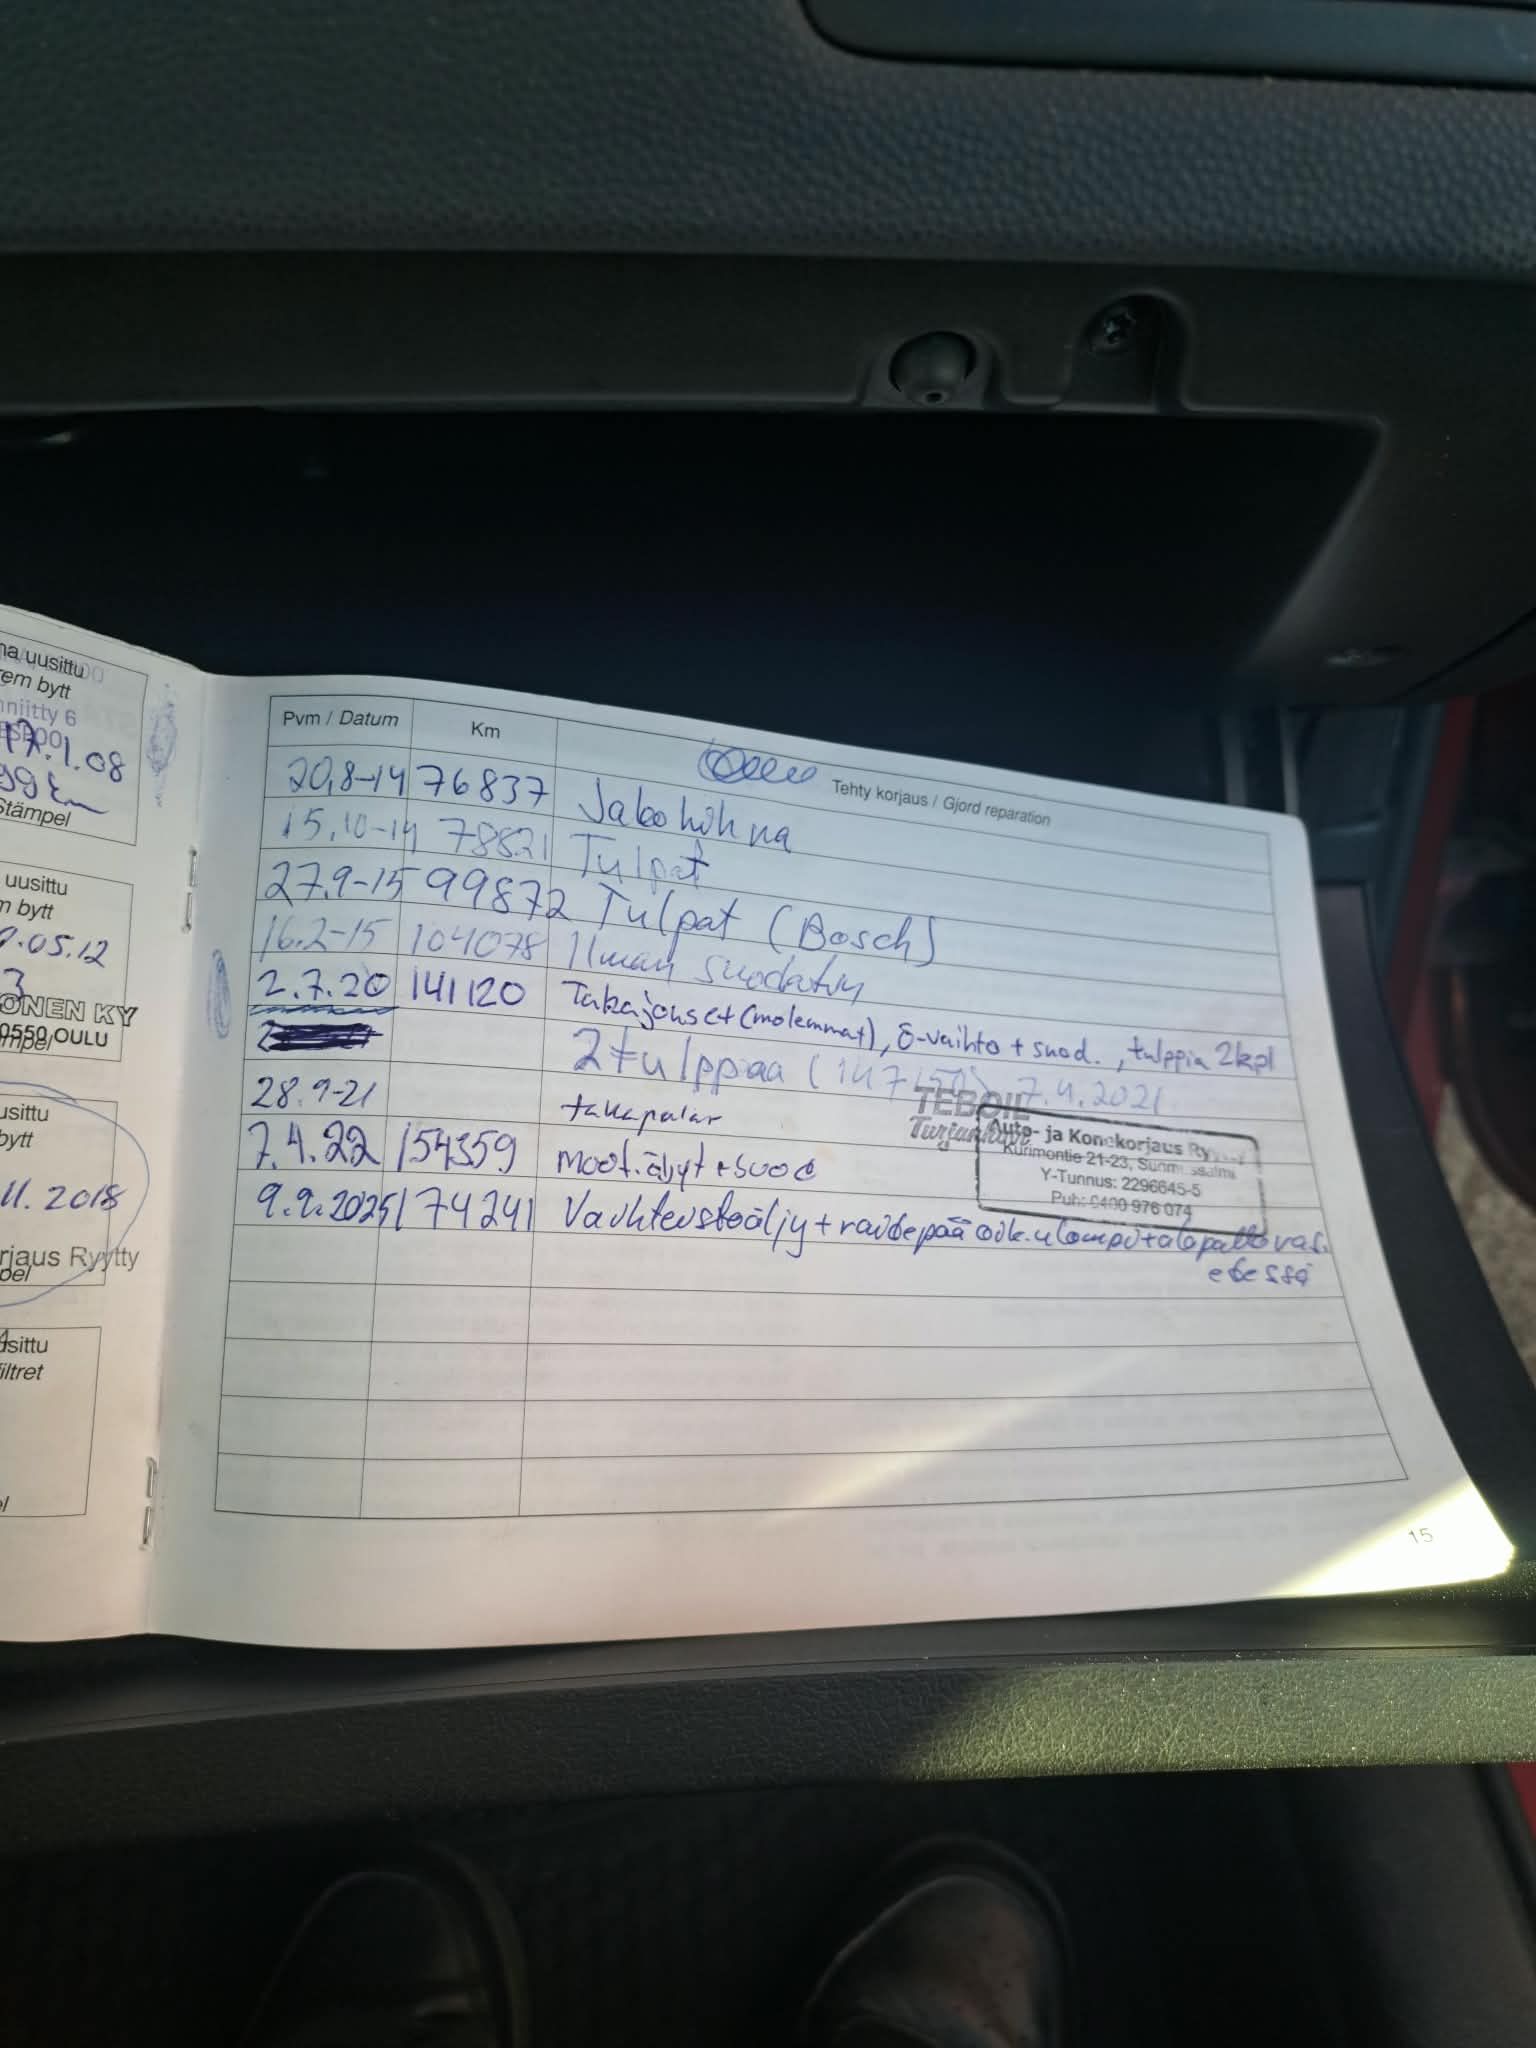 na uusittu
rem bytt
nniitty 6
17.1.08
Stämpel
uusittu
m bytt
.05.12
3
ONEN KY
0550 OULU
mpel
usittu
bytt
11. 2018
rjaus Ryytty
pel
usittu
iltret
el
Pvm / Datum Km Tehty korjaus / Gjord reparation
20.8-14 76837 Jakohihna
15.10-14 78821 Tulpat
27.9-15 99872 Tulpat (Bosch)
16.2-15 104078 Ilman suodatin
2.7.20 141120 Takajouset (molemmat), ö-vaihto + suod. , tulppia 2kpl
2 tulppaa (147150) 7.4.2021
28.9-21 takapalar
TEBOIL
Turjanhovi
7.4.22 154359 moot.öljyt + suod
Auto- ja Konekorjaus Ryytty
Kurimontie 21-23, Suomussalmi
Y-Tunnus: 2296645-5
Puh: 0400 976 074
9.9.2025 174241 Vaihteistoöljy + raidepää oik. ulompi + alapallo vas.
edessä
15